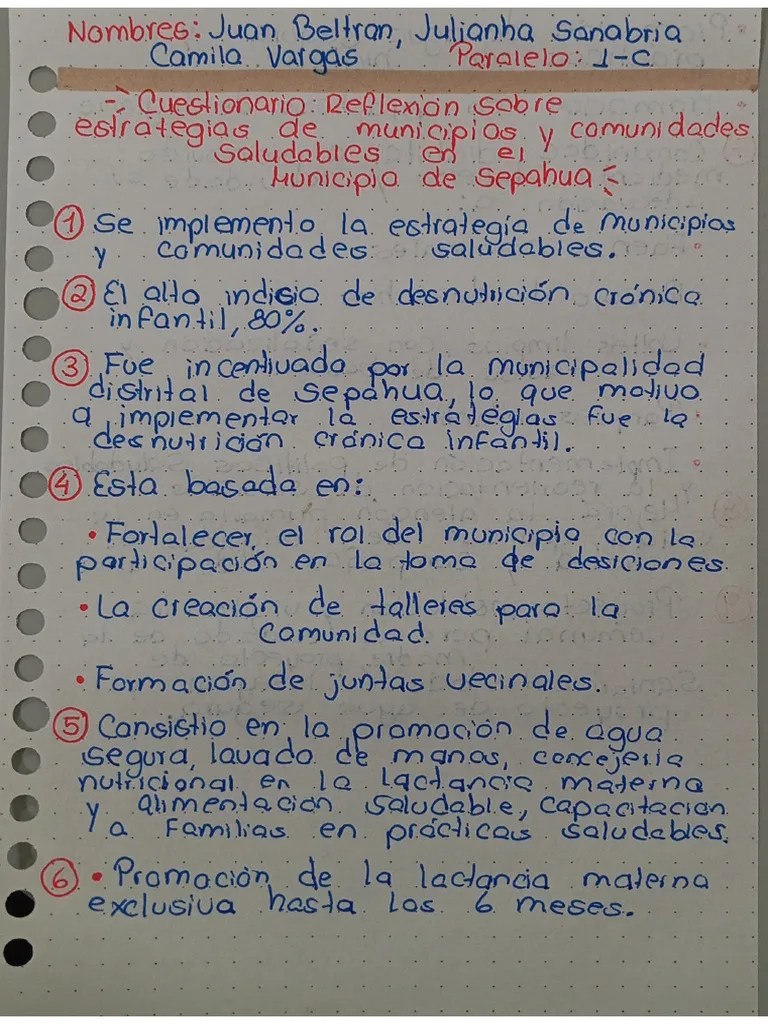 Nombres: Juan Beltran, Julianha Sanabria
Camila Vargas Paralelo: 1-C
- Cuestionario: Reflexión sobre
estrategias de municipios y comunidades
saludables en el
Municipio de Sepahua:
1 Se implemento la estrategia de municipios
y comunidades saludables.
2 El alto indisio de desnutrición crónica
infantil, 80%.
3 Fue incentivada por la municipalidad
distrital de Sepahua, lo que motivo
a implementar la estrategias fue la
desnutrición crónica infantil.
4 Esta basada en:
• Fortalecer el rol del municipio con la
participación en la toma de desiciones.
• La creación de talleres para la
comunidad.
• Formación de juntas vecinales.
5 Consistio en la promoción de agua
segura, lavado de manos, concejeria
nutricional en la lactancia materna
y alimentación saludable, capacitación
a familias en prácticas saludables.
6 • Promoción de la lactancia materna
exclusiva hasta los 6 meses.